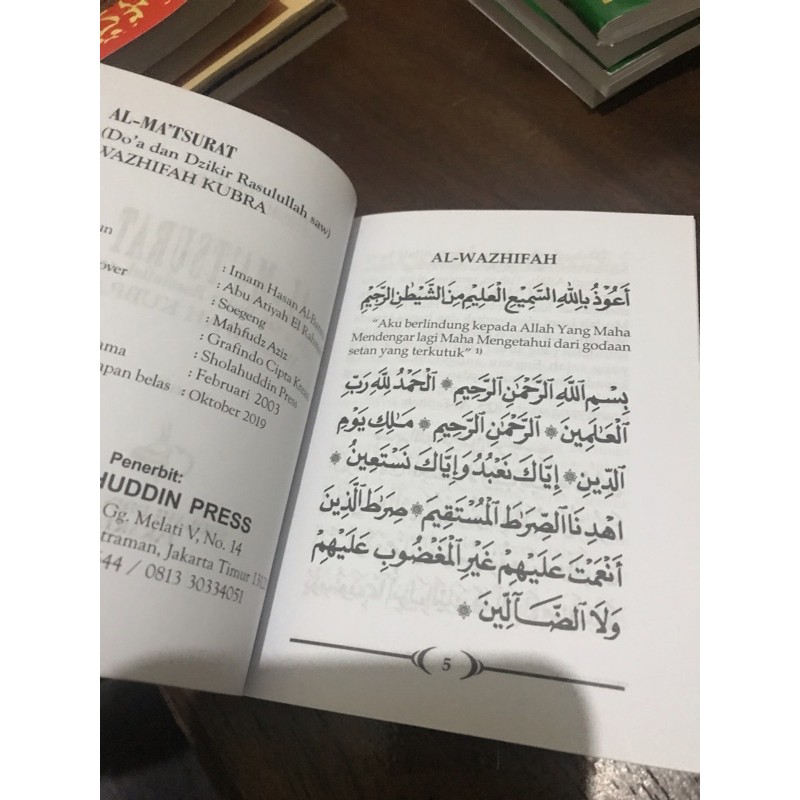 AL-MA'TSURAT
(Do'a dan Dzikir Rasulullah saw)
WAZHIFAH KUBRA
: Imam Hasan
: Abu Atiyah El
: Soegeng
: Mahfudz Aziz
: Grafindo Cipta
: Sholahuddin Press
: Februari 2003
: Oktober 2019
Penerbit:
HUDDIN PRESS
Gg. Melati V, No. 14
traman, Jakarta Timur
44 / 0813 30334051
AL-WAZHIFAH
أَعُوْذُ بِاللهِ السَّمِيْعِ الْعَلِيْمِ مِنَ الشَّيْطٰنِ الرَّجِيْمِ
"Aku berlindung kepada Allah Yang Maha
Mendengar lagi Maha Mengetahui dari godaan
setan yang terkutuk" 1)
بِسْمِ ٱللَّهِ ٱلرَّحْمَٰنِ ٱلرَّحِيمِ ۞ ٱلْحَمْدُ لِلَّهِ رَبِّ
ٱلْعَٰلَمِينَ ۞ ٱلرَّحْمَٰنِ ٱلرَّحِيمِ ۞ مَٰلِكِ يَوْمِ
ٱلدِّينِ ۞ إِيَّاكَ نَعْبُدُ وَإِيَّاكَ نَسْتَعِينُ ۞
ٱهْدِنَا ٱلصِّرَٰطَ ٱلْمُسْتَقِيمَ ۞ صِرَٰطَ ٱلَّذِينَ
أَنْعَمْتَ عَلَيْهِمْ غَيْرِ ٱلْمَغْضُوبِ عَلَيْهِمْ
وَلَا ٱلضَّآلِّينَ ۞
5